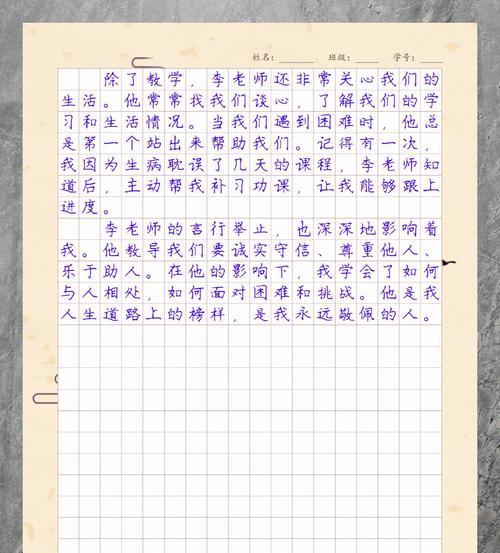 姓名： 班级： 学号：
除了教学，李老师还非常关心我们的
生活。他常常找我们谈心，了解我们的学
习和生活情况。当我们遇到困难时，他总
是第一个站出来帮助我们。记得有一次，
我因为生病耽误了几天的课程，李老师知
道后，主动帮我补习功课，让我能够跟上
进度。
李老师的言行举止，也深深地影响着
我。他教导我们要诚实守信、尊重他人、
乐于助人。在他的影响下，我学会了如何
与人相处，如何面对困难和挑战。他是我
人生道路上的榜样，是我永远敬佩的人。